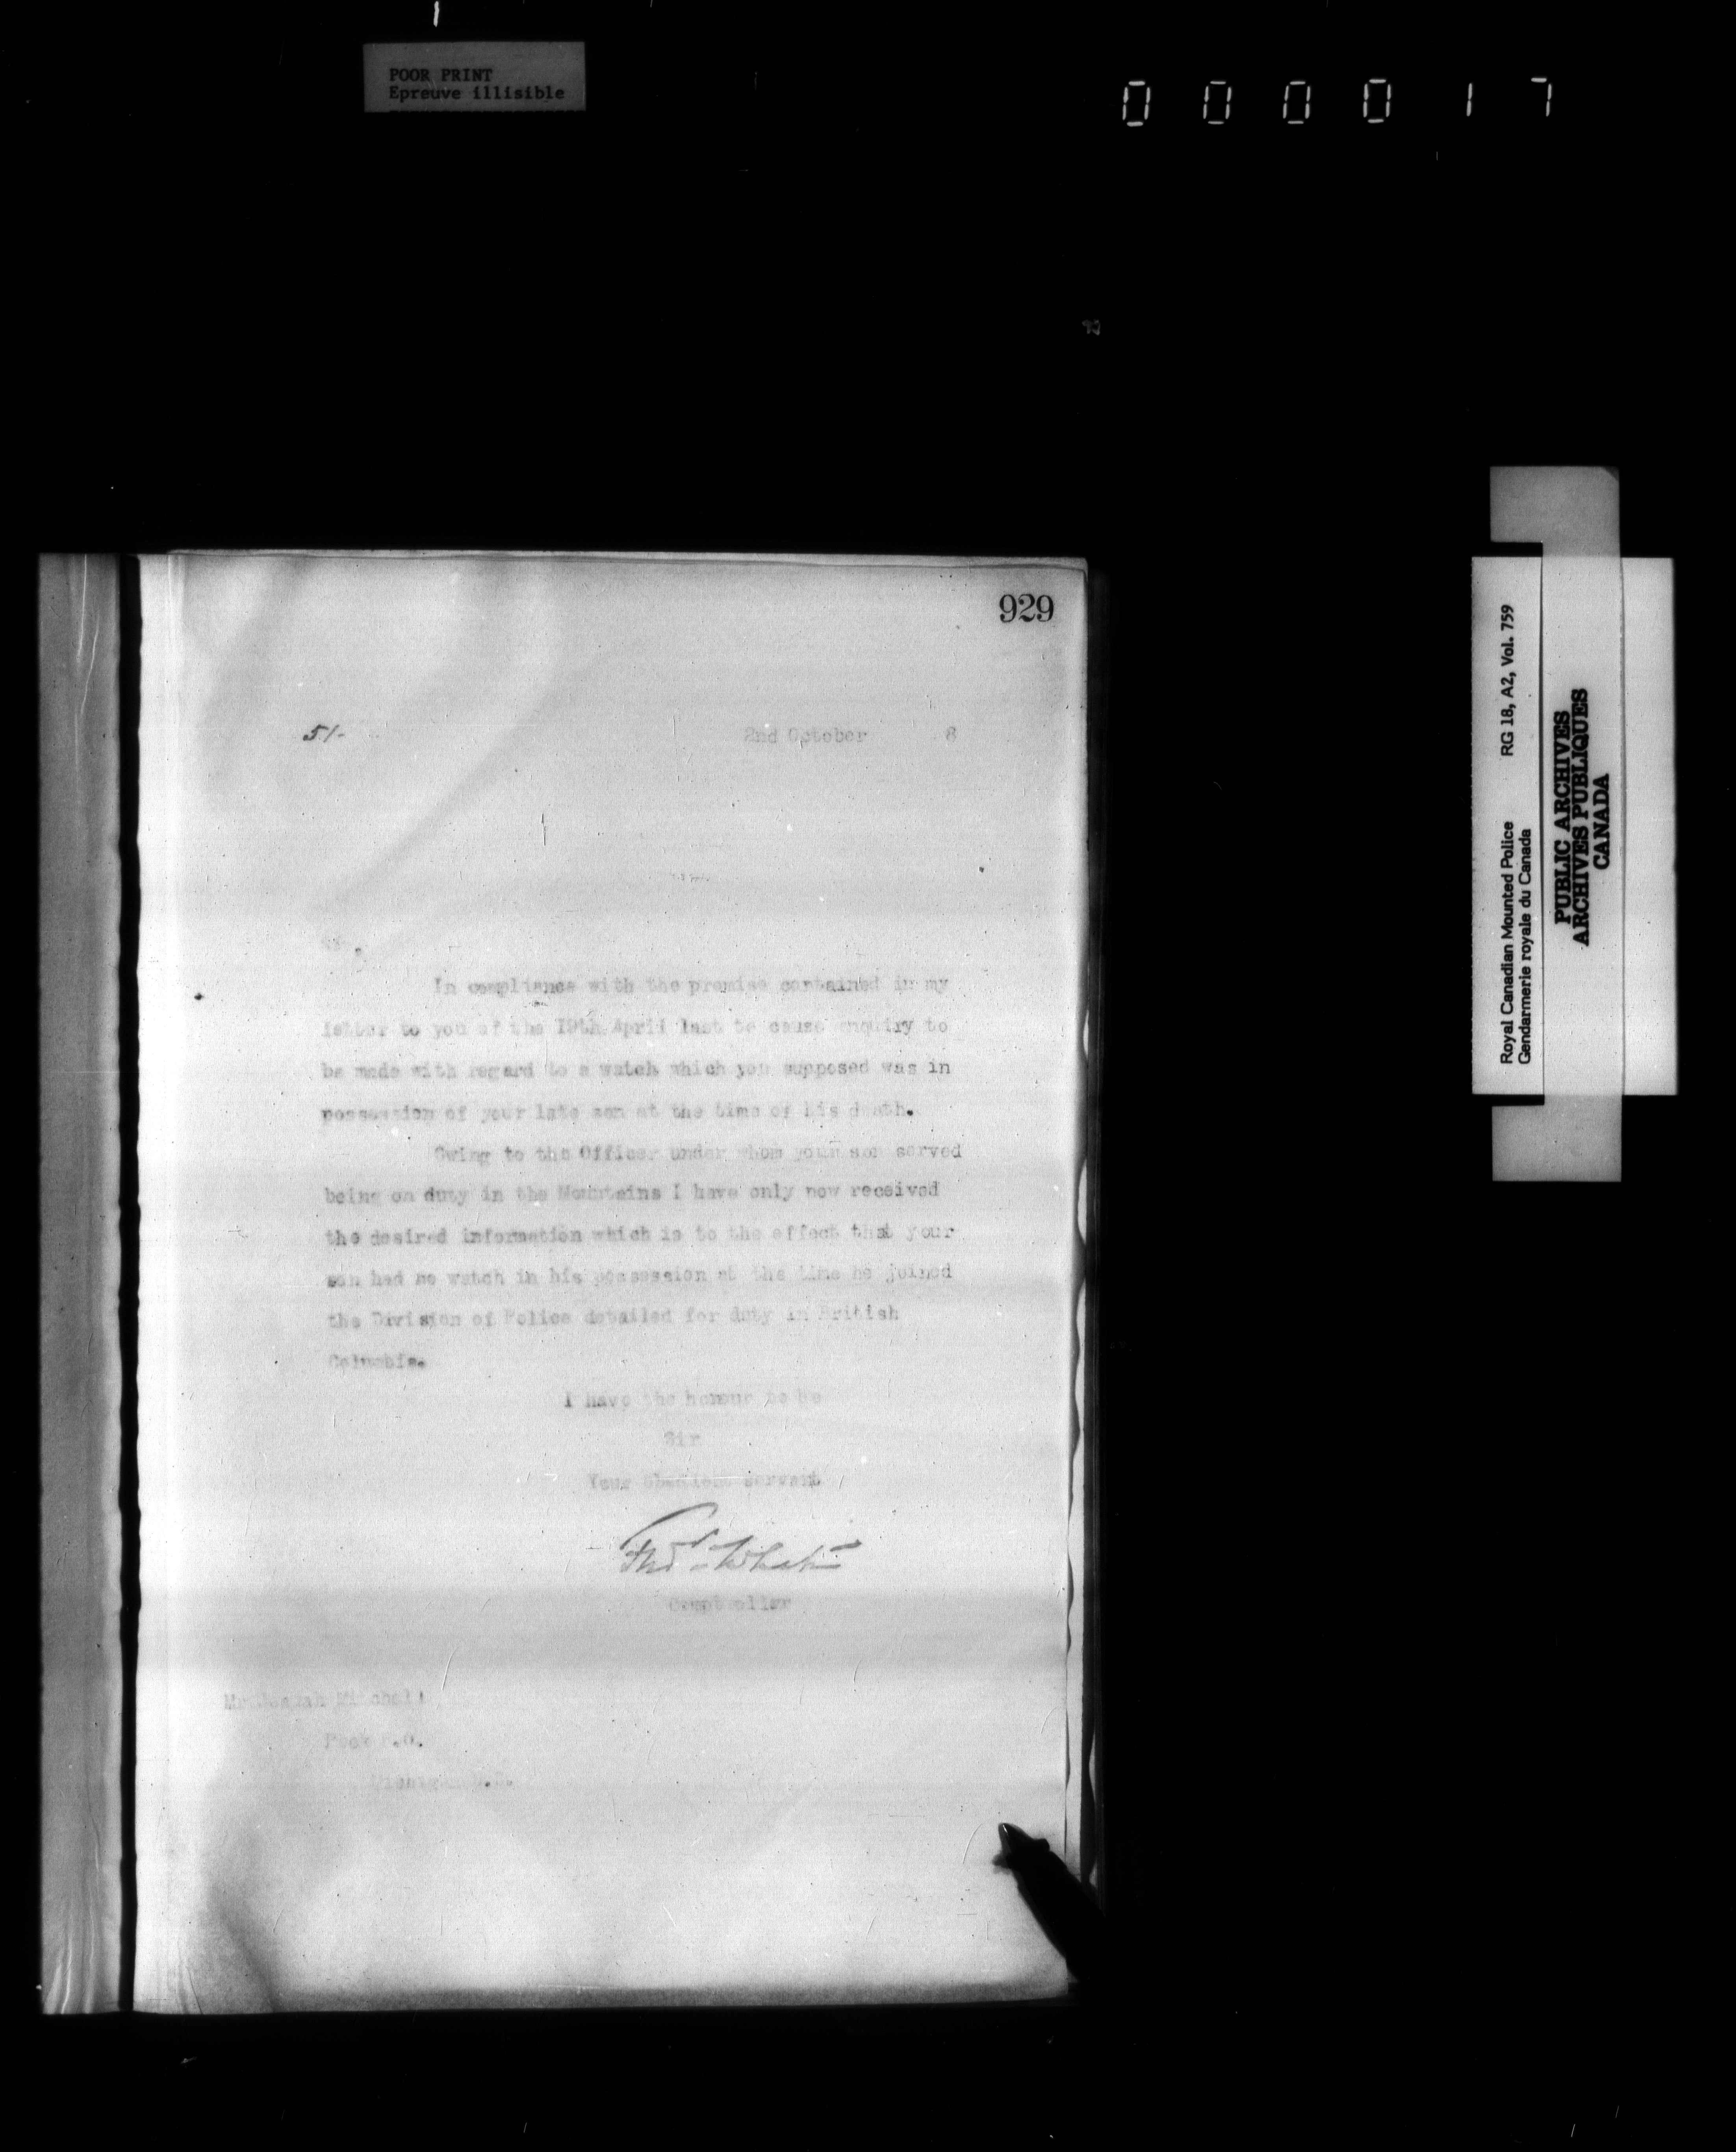 POOR PRINT
Epreuve illisible
0 0 0 0 1 7
929
51-
2nd October 8
Sir,
In compliance with the promise contained in my
letter to you of the 19th April last to cause enquiry to
be made with regard to a watch which you supposed was in
possession of your late son at the time of his death.
Owing to the Officer under whom your son served
being on duty in the Mountains I have only now received
the desired information which is to the effect that your
son had no watch in his possession at the time he joined
the Division of Police detailed for duty in British
Columbia.
I have the honour to be
Sir
Your obedient servant
Fred White
Comptroller
Mr Mitchell
P.O.
Michigan U.S.
Royal Canadian Mounted Police RG 18, A2, Vol. 759
Gendarmerie royale du Canada
PUBLIC ARCHIVES
ARCHIVES PUBLIQUES
CANADA